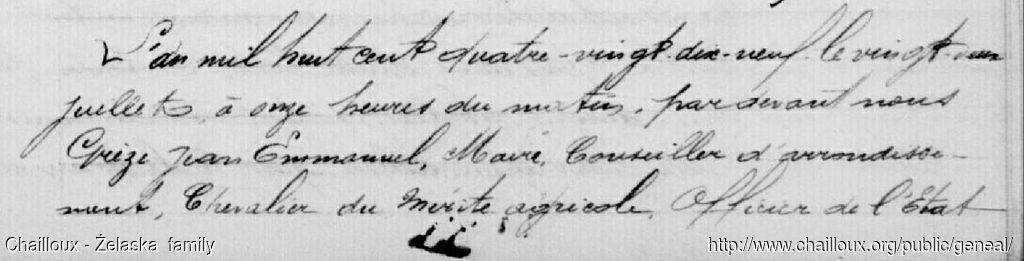 L'an mil huit cent quatre-vingt-dix-neuf, le vingt-un
juillet, à onze heures du matin, par devant nous
Grèze Jean Emmanuel, Maire, Conseiller d'arrondisse-
ment, Chevalier du Mérite agricole, Officier de l'Etat
Chailloux - Żelaska family
http://www.chailloux.org/public/geneal/